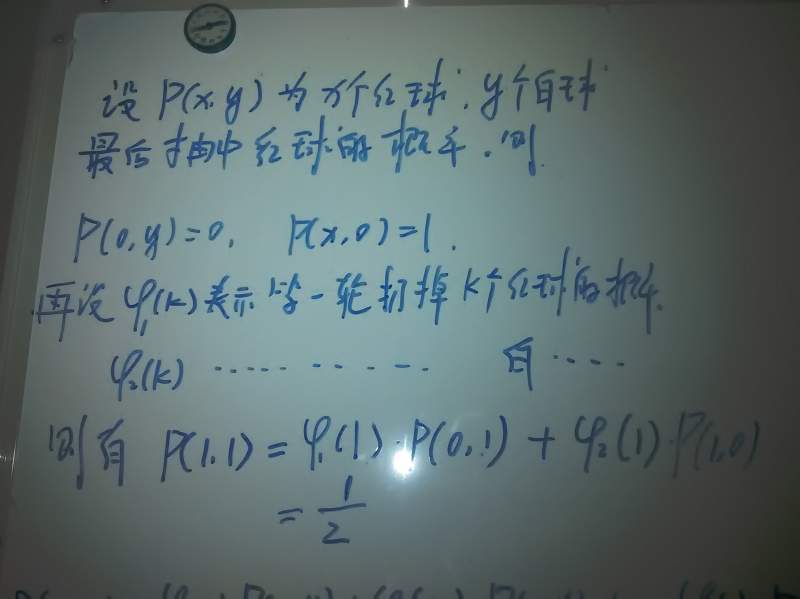 设 P(x,y) 为 x个红球,y个白球
最后抽中红球的概率,则
P(0,y)=0, P(x,0)=1.
再设 φ₁(k)表示第一轮扔掉k个红球的概率.
φ₂(k) ………… 白 ‥‥
则有 P(1,1) = φ₁(1)·P(0,1) + φ₂(1)·P(1,0)
= 1/2